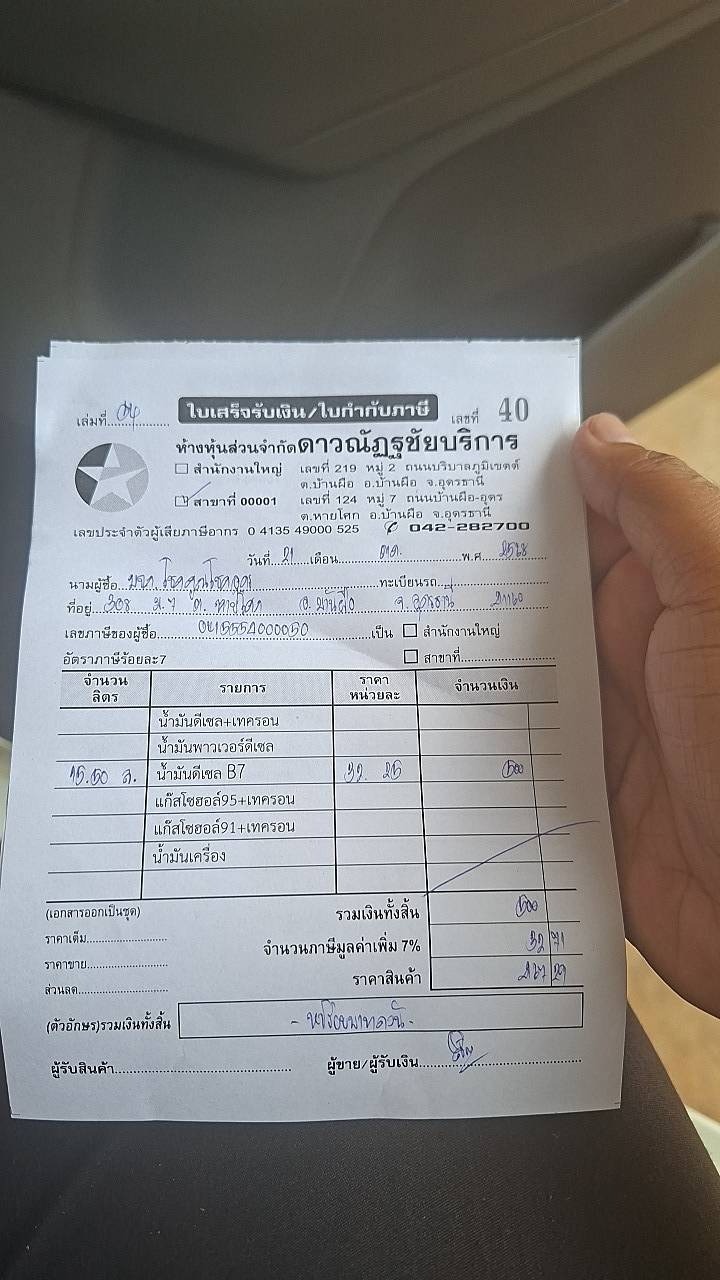 เล่มที่ 04 ใบเสร็จรับเงิน/ใบกำกับภาษี เลขที่ 40
ห้างหุ้นส่วนจำกัดดาวณัฏฐชัยบริการ
สำนักงานใหญ่ เลขที่ 219 หมู่ 2 ถนนบริบาลภูมิเขตต์
ต.บ้านผือ อ.บ้านผือ จ.อุดรธานี
สาขาที่ 00001 เลขที่ 124 หมู่ 7 ถนนบ้านผือ-อุดร
ต.หายโศก อ.บ้านผือ จ.อุดรธานี
เลขประจำตัวผู้เสียภาษีอากร 0 4135 49000 525 042-282700
วันที่ 21 เดือน ต.ค. พ.ศ. 2568
นามผู้ซื้อ ทะเบียนรถ
ที่อยู่ 308 ม.7 ต. หายโศก อ. บ้านผือ จ. อุดรธานี
เลขภาษีของผู้ซื้อ 0415554000050 เป็น สำนักงานใหญ่
อัตราภาษีร้อยละ7 สาขาที่
จำนวนลิตร รายการ ราคาหน่วยละ จำนวนเงิน
น้ำมันดีเซล+เทครอน
น้ำมันพาวเวอร์ดีเซล
15.50 ล. น้ำมันดีเซล B7 32. 25 500
แก๊สโซฮอล์95+เทครอน
แก๊สโซฮอล์91+เทครอน
น้ำมันเครื่อง
(เอกสารออกเป็นชุด) รวมเงินทั้งสิ้น 500
ราคาเต็ม จำนวนภาษีมูลค่าเพิ่ม 7% 32 71
ราคาขาย ราคาสินค้า 467 29
ส่วนลด
(ตัวอักษร)รวมเงินทั้งสิ้น - ห้าร้อยบาทถ้วน -
ผู้รับสินค้า ผู้ขาย/ผู้รับเงิน